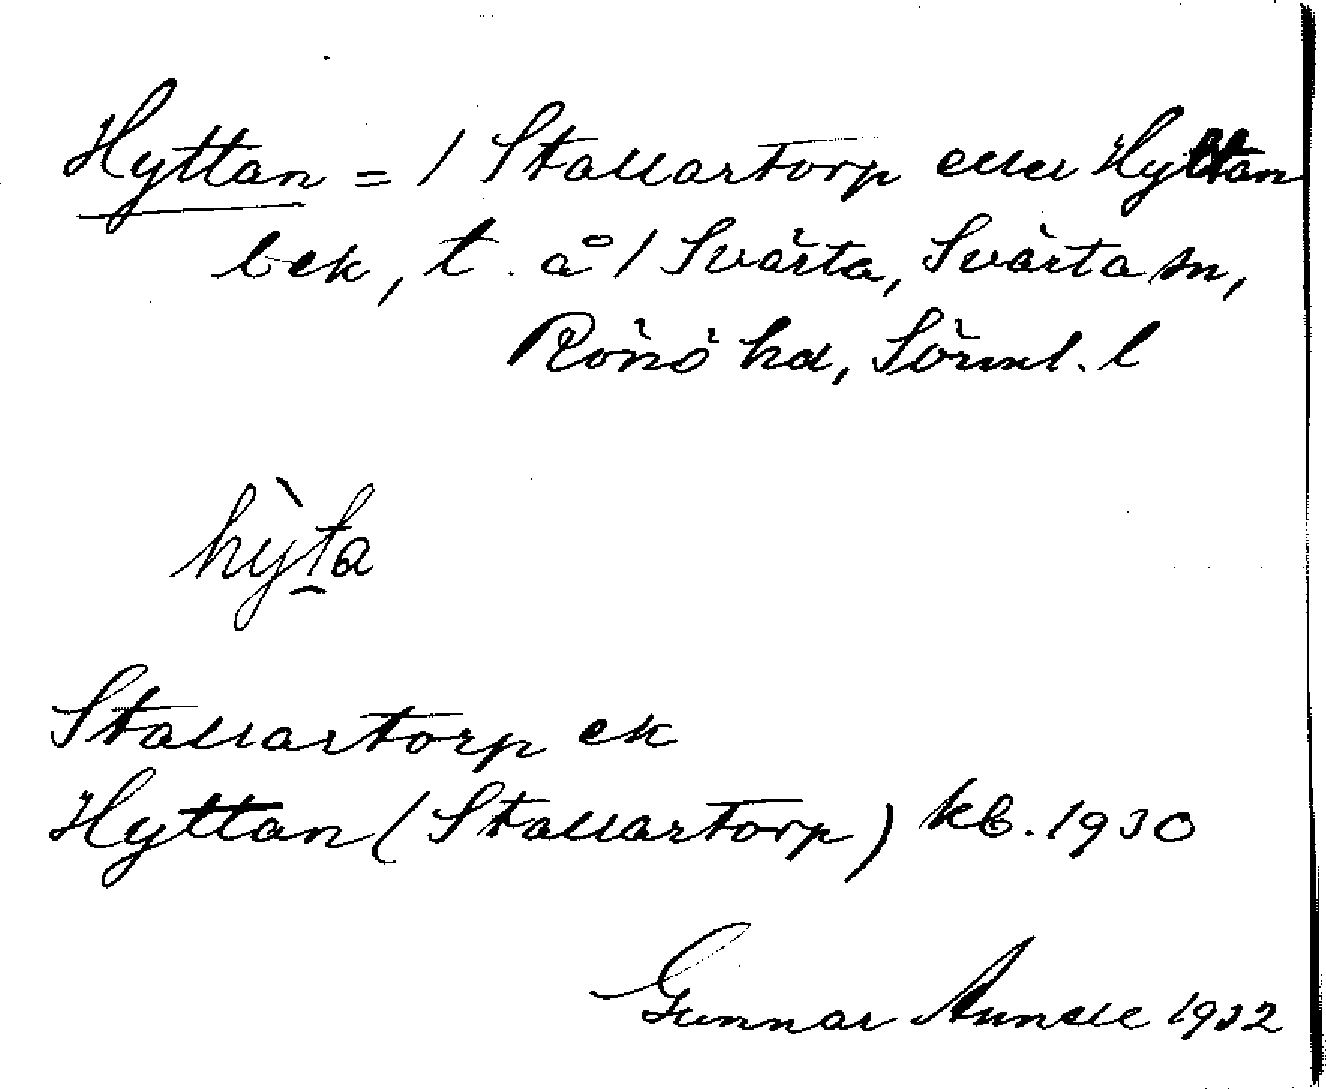 Hyttan = / Stallartorp eller Hyttan
bek, t. å / Svärta, Svärta sn,
Rönö hd, Sörml. l
hy̍ta
Stallartorp ek
Hyttan (Stallartorp) kb. 1930
Gunnar 1932